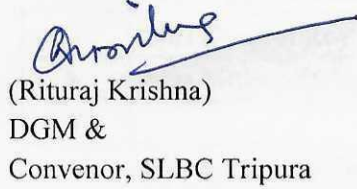 (Rituraj Krishna)
DGM &
Convenor, SLBC Tripura